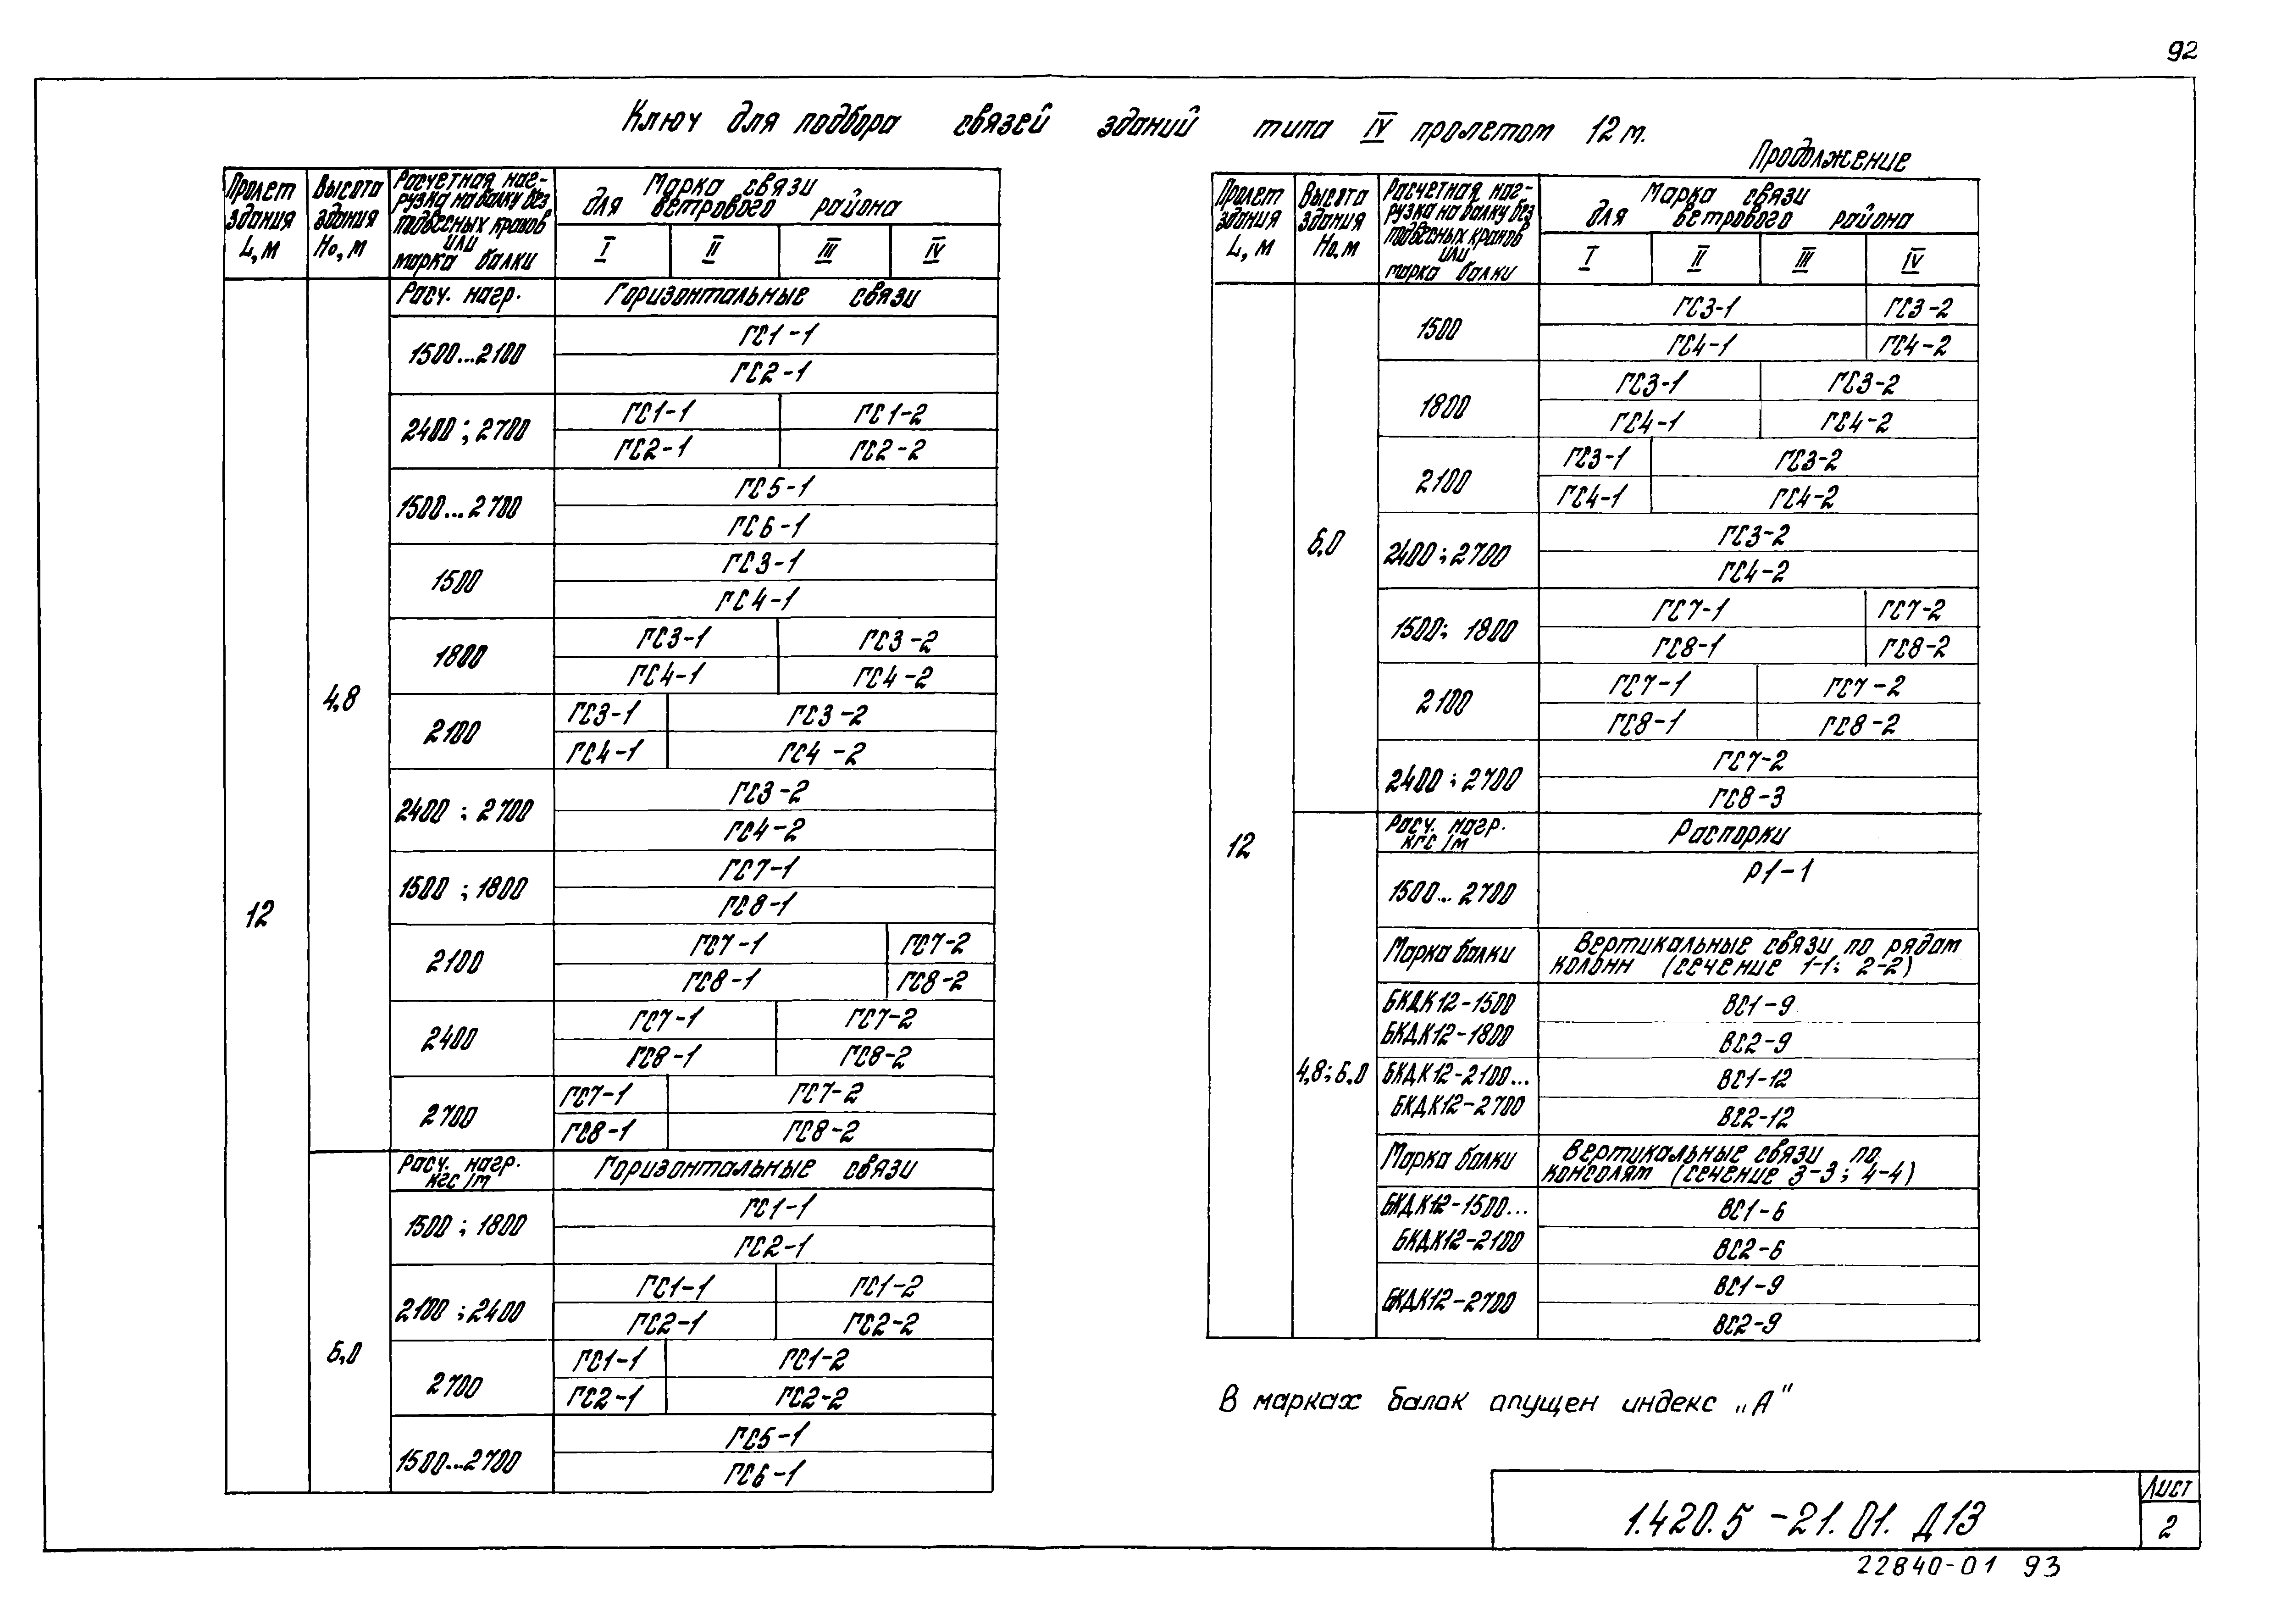 92
Ключ для подбора связей зданий типа IV пролетом 12 м.
Продолжение
Пролет здания L, м
Высота здания Но, м
Расчетная наг-
рузка на балку без
подвесных кранов
или
марка балки
Марка связи
для ветрового района
I II III IV
12
4,8
Расч. нагр. Горизонтальные связи
1500...2100
ГС1-1
ГС2-1
2400; 2700
ГС1-1 ГС1-2
ГС2-1 ГС2-2
1500...2700
ГС5-1
ГС6-1
1500
ГС3-1
ГС4-1
1800
ГС3-1 ГС3-2
ГС4-1 ГС4-2
2100
ГС3-1 ГС3-2
ГС4-1 ГС4-2
2400; 2700
ГС3-2
ГС4-2
1500; 1800
ГС7-1
ГС8-1
2100
ГС7-1 ГС7-2
ГС8-1 ГС8-2
2400
ГС7-1 ГС7-2
ГС8-1 ГС8-2
2700
ГС7-1 ГС7-2
ГС8-1 ГС8-2
6,0
Расч. нагр.
кгс/м
Горизонтальные связи
1500; 1800
ГС1-1
ГС2-1
2100; 2400
ГС1-1 ГС1-2
ГС2-1 ГС2-2
2700
ГС1-1 ГС1-2
ГС2-1 ГС2-2
1500...2700
ГС5-1
ГС6-1
Пролет здания L, м
Высота здания Но, м
Расчетная наг-
рузка на балку без
подвесных кранов
или
марка балки
Марка связи
для ветрового района
I II III IV
12
6,0
1500
ГС3-1 ГС3-2
ГС4-1 ГС4-2
1800
ГС3-1 ГС3-2
ГС4-1 ГС4-2
2100
ГС3-1 ГС3-2
ГС4-1 ГС4-2
2400; 2700
ГС3-2
ГС4-2
1500; 1800
ГС7-1 ГС7-2
ГС8-1 ГС8-2
2100
ГС7-1 ГС7-2
ГС8-1 ГС8-2
2400; 2700
ГС7-2
ГС8-3
4,8; 6,0
Расч. нагр.
кгс/м
Распорки
1500...2700
Р1-1
Марка балки
Вертикальные связи по рядам
колонн (сечение 1-1; 2-2)
БКДК12-1500
БКДК12-1800
ВС1-9
ВС2-9
БКДК12-2100...
БКДК12-2700
ВС1-12
ВС2-12
Марка балки
Вертикальные связи по
консолям (сечение 3-3; 4-4)
БКДК12-1500...
БКДК12-2100
ВС1-6
ВС2-6
БКДК12-2700
ВС1-9
ВС2-9
В марках балок опущен индекс „А"
1.420.5-21.01. Д13
Лист
2
22840-01 93